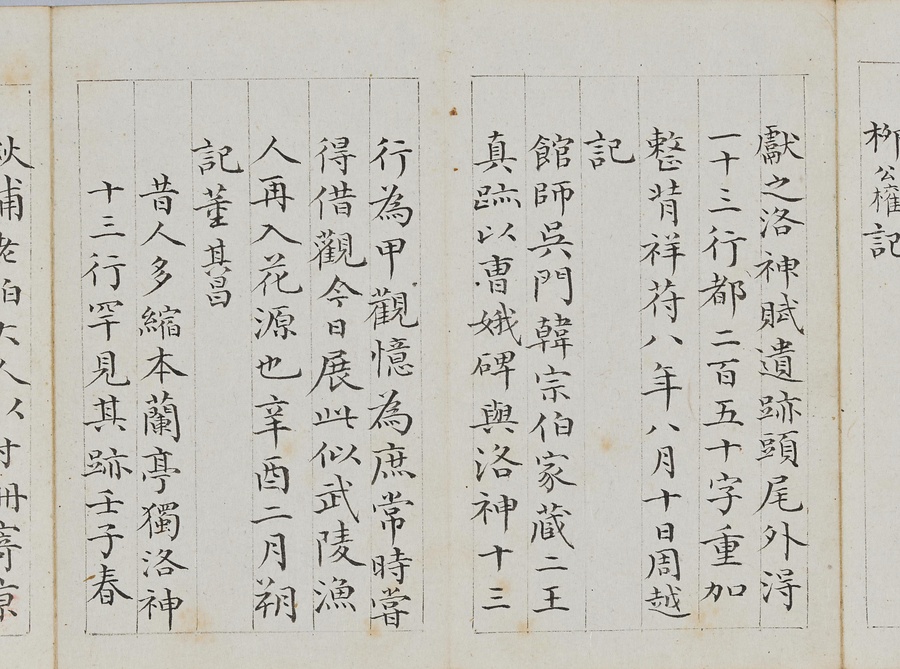 柳公權記
獻之洛神賦遺跡頭尾外得
一十三行都二百五十字重加
整背祥苻八年八月十日周越
記
館師吳門韓宗伯家藏二王
真跡以曹娥碑與洛神十三
行為甲觀憶為庶常時嘗
得借觀今日展此似武陵漁
人再入花源也辛酉二月朔
記董其昌
昔人多縮本蘭亭獨洛神
十三行罕見其跡壬子春
老伯大人以